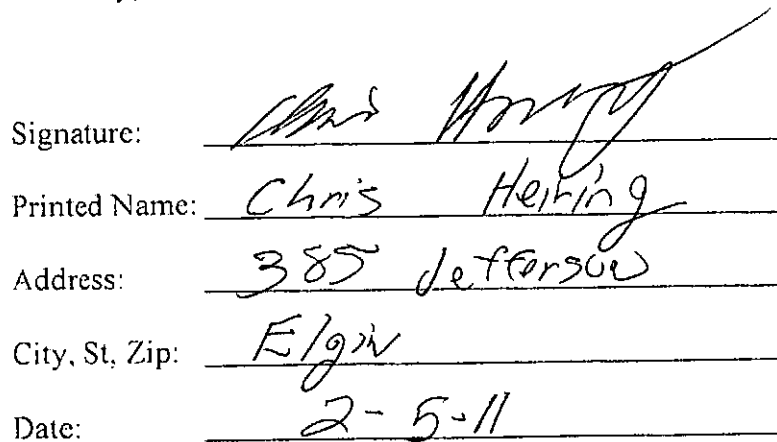 Signature: Chris
Printed Name: Chris Heiring
Address: 385 Jefferson
City, St, Zip: Elgin
Date: 2-5-11